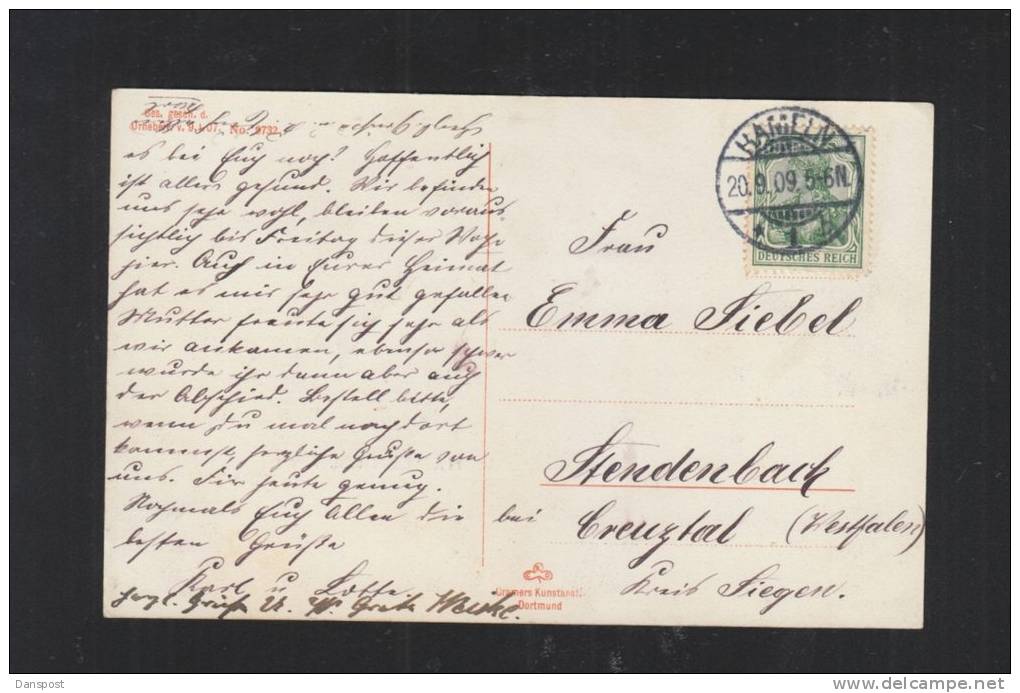 Ges. gesch. d.
Urheberr. v. 9.1.07. No. 9732
es bei Euch noch? Hoffentlich
ist alles gesund. Wir befinden
uns sehr wohl, bleiben voraus
sichtlich bis Freitag dieser Woche
hier. Auch in Eurer Heimat
hat es mir sehr gut gefallen
Mutter freute sich sehr als
wir ankamen, ebenso schwer
wurde ihr dann aber auch
der Abschied. Bestell bitte,
wenn Du mal nach dort
kommst, herzliche Grüße von
uns. Für heute genug.
Nochmals Euch Allen die
besten Grüße
Karl u Lotte
herzl. Gruß
HAMELN
20.9.09. 5-6N.
* 1
DEUTSCHES REICH
Frau
Emma Siebel
Stendenbach
bei Creuztal (Westfalen)
Kreis Siegen.
Cramers Kunstanst.
Dortmund
Danspost
www.delcampe.net